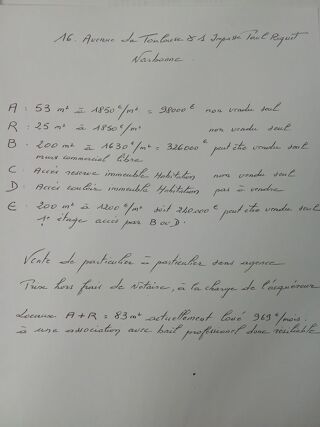 16. Avenue de Toulouse & 1 Impasse Paul Riquet
Narbonne.
A : 53 m² à 1850 €/m² = 98000 € non vendu seul
R : 25 m² à 1850 €/m² non vendu seul
B : 200 m² à 1630 €/m² = 326000 € peut être vendu seul
murs commercial libre
C : Accès réserve immeuble Habitation non vendu seul
D : Accès couloir immeuble Habitation pas à vendre
E : 200 m² à 1200 €/m² soit 240.000 € peut être vendu seul
1° étage accès par B ou D.
Vente de particulier à particulier sans agence
Prix hors frais de Notaire, à la charge de l'acquéreur
Locaux A + R = 83 m² actuellement loué 969 €/mois.
à une association avec bail professionnel donc résiliable